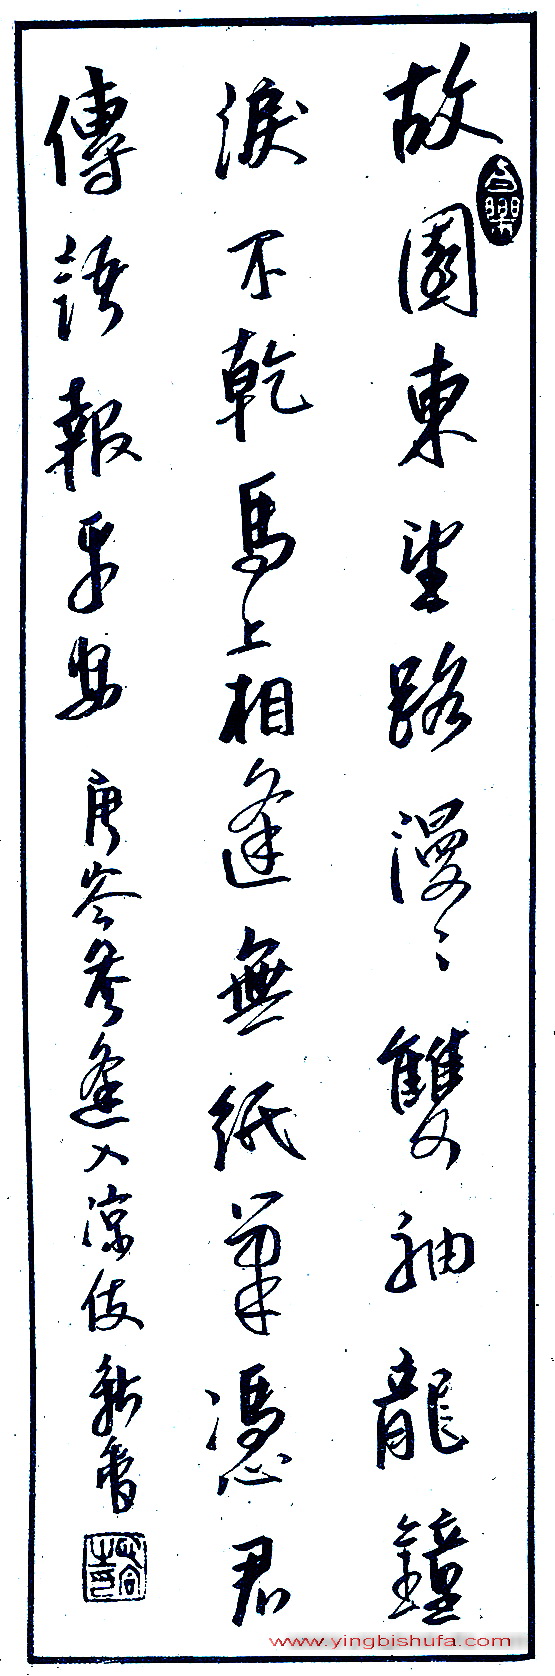 故園東望路漫〻雙袖龍鐘
淚不乾馬上相逢無紙筆憑君
傳語報平安 唐岑參逢入涼使
www.yingbishufa.com